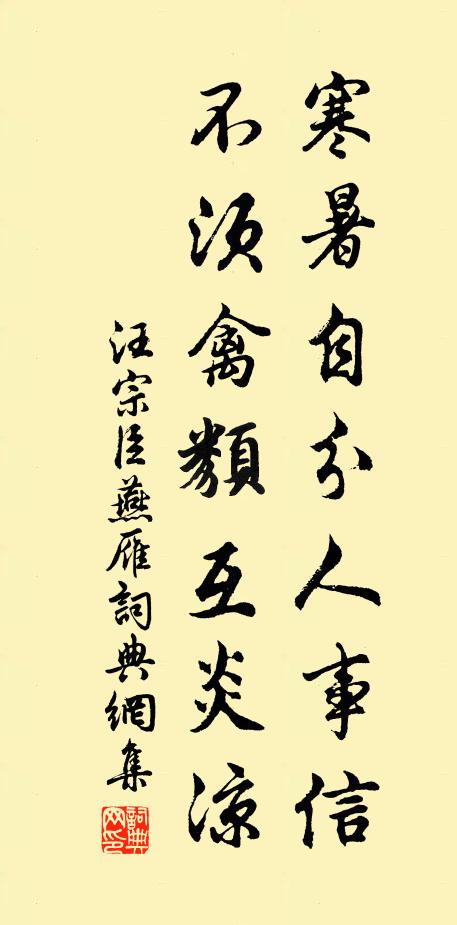 寒暑自分人事信
不須禽類互炎涼
汪宗臣燕雁詞典網集
詞典網印